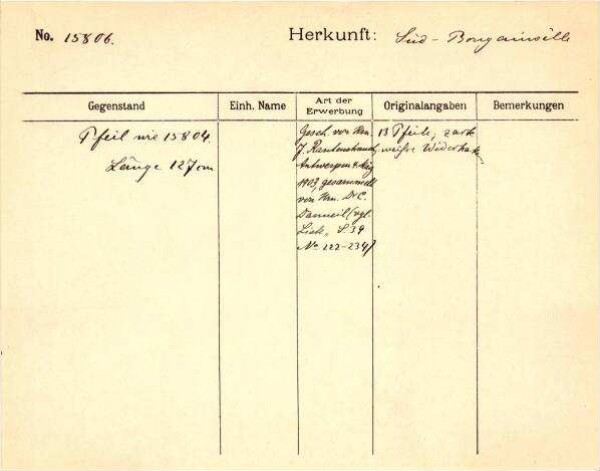 No. 15806. Herkunft: Süd-Bougainville
Gegenstand Einh. Name Art der Erwerbung Originalangaben Bemerkungen
Pfeil wie 15804.
Länge 127 cm
Gesch. von Hrn.
J. Rautenstrauch,
Antwerpen
1903, gesammelt
von Hrn. Dr. C.
Danneil (vgl.
Liste, S. 34
No 222-234)
13 Pfeile,
weiße Widerhaken